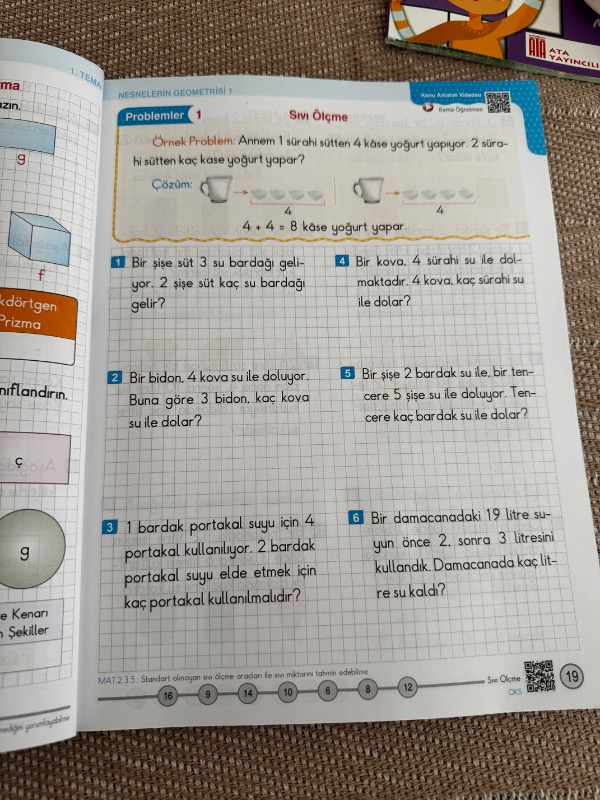 ATA
ATA
YAYINCILI
1. TEMA
ma
zın.
g
f
kdörtgen
Prizma
nıflandırın.
ç
g
e Kenarı
n Şekiller
mediğini yorumlayabilme
NESNELERİN GEOMETRİSİ 1
Konu Anlatım Videosu
Esma Öğretmen
Problemler 1
Sıvı Ölçme
Örnek Problem: Annem 1 sürahi sütten 4 kâse yoğurt yapıyor. 2 süra-
hi sütten kaç kase yoğurt yapar?
Çözüm:
4
4
4 + 4 = 8 kâse yoğurt yapar.
1 Bir şişe süt 3 su bardağı geli-
yor. 2 şişe süt kaç su bardağı
gelir?
2 Bir bidon, 4 kova su ile doluyor.
Buna göre 3 bidon, kaç kova
su ile dolar?
3 1 bardak portakal suyu için 4
portakal kullanılıyor. 2 bardak
portakal suyu elde etmek için
kaç portakal kullanılmalıdır?
4 Bir kova, 4 sürahi su ile dol-
maktadır. 4 kova, kaç sürahi su
ile dolar?
5 Bir şişe 2 bardak su ile, bir ten-
cere 5 şişe su ile doluyor. Ten-
cere kaç bardak su ile dolar?
6 Bir damacanadaki 19 litre su-
yun önce 2, sonra 3 litresini
kullandık. Damacanada kaç lit-
re su kaldı?
MAT.2.3.5. Standart olmayan sıvı ölçme araçları ile sıvı miktarını tahmin edebilme
16 9 14 10 6 8 12
Sıvı Ölçme
OKS
19